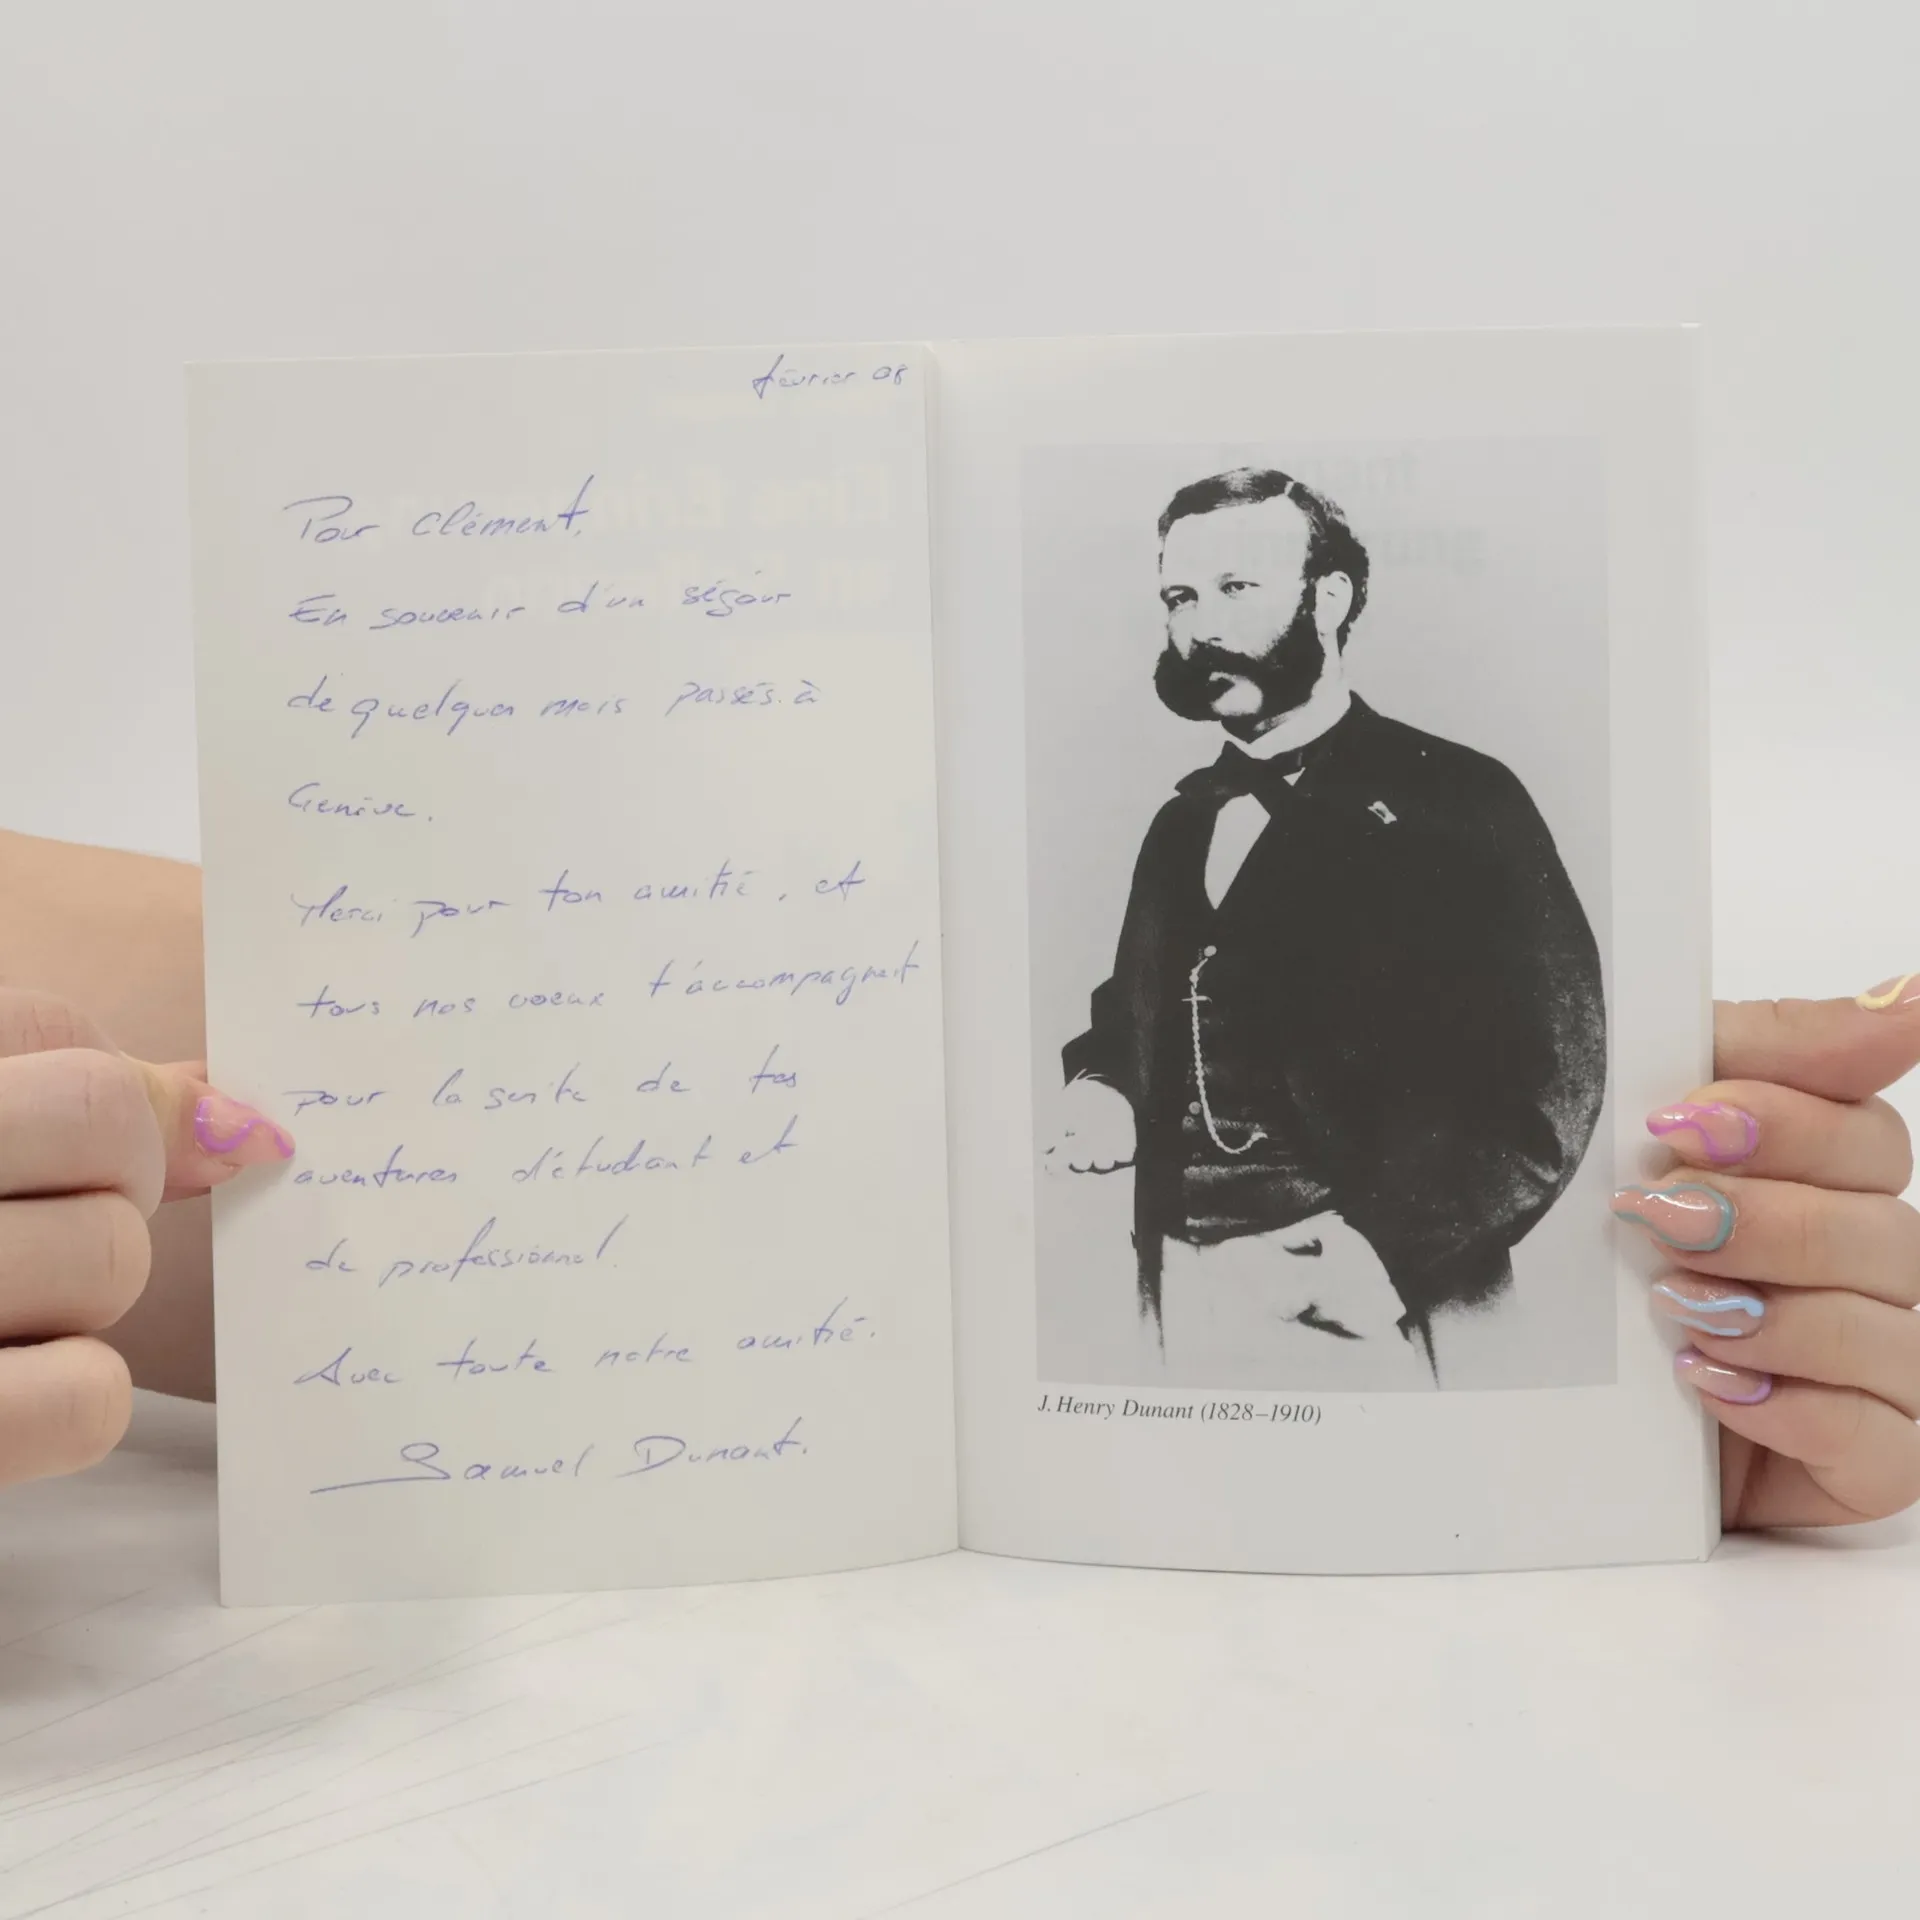 février 08
Pour Clément,
En souvenir d'un séjour
de quelques mois passés à
Genève.
Merci pour ton amitié, et
tous nos voeux t'accompagnent
pour la suite de tes
aventures d'étudiant et
de professionnel.
Avec toute notre amitié.
Samuel Dunant.
J. Henry Dunant (1828–1910)